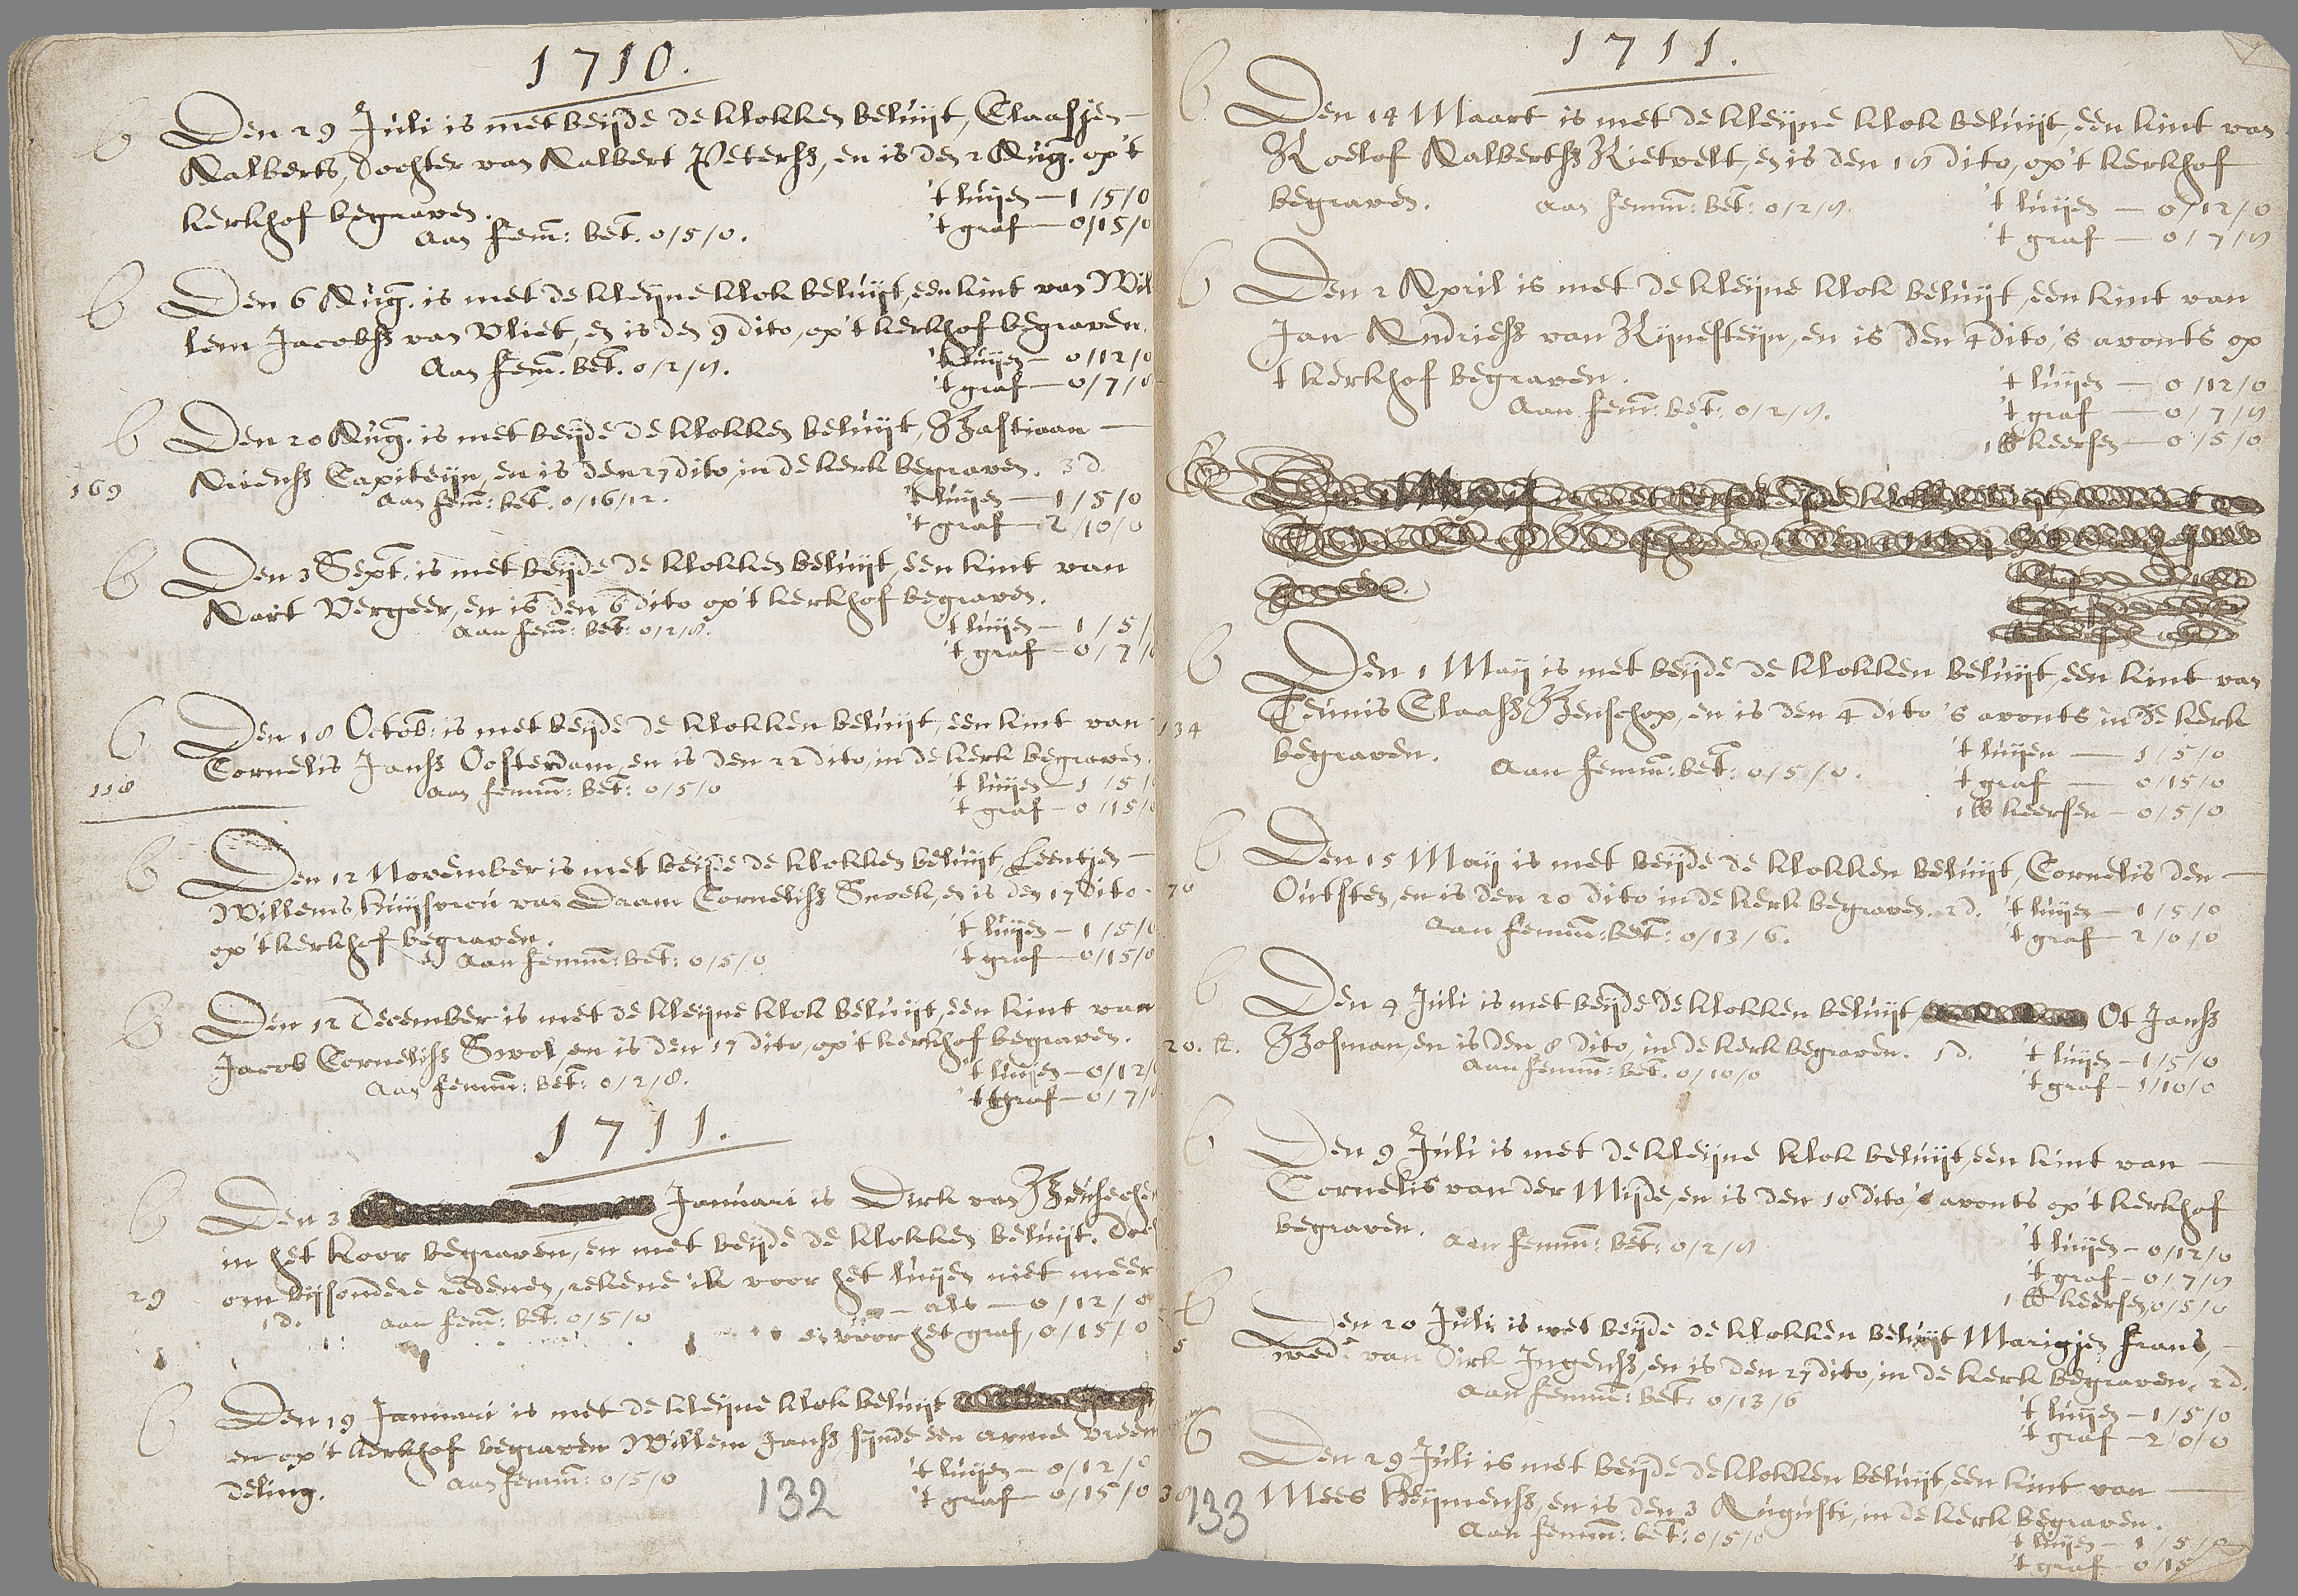 1710.
b Den 29 Juli is met beijde de klokken beluijt, Claasjen
Aalberts, dochter van Aalbert Peterss, en is den 2 Aug. op 't
kerkhof begraven. 't luijen — 1/5/0
Aan Fem: bet. 0/5/0. 't graf — 0/15/0
b Den 6 Aug. is met de kleijne klok beluijt, een kint van Wil
lem Jacobss van Vliet, en is den 9 dito, op 't kerkhof begraven.
't luijen — 0/12/0
Aan Fem. bet. 0/2/8. 't graf — 0/7/8
b Den 20 Aug. is met beijde de klokken beluijt, Bastiaan
169 Arienss Capiteijn, en is den 27 dito, in de kerk begraven. 3 d.
Aan Fem: bet. 0/16/12. 't luijen — 1/5/0
't graf — 2/10/0
b Den 3 Sept. is met beijde de klokken beluijt, een kint van
Aart Vergeer, en is den 6 dito op 't kerkhof begraven.
Aan Fem: bet: 0/2/8. 't luijen — 1/5/
't graf — 0/7/
b Den 18 Octob: is met beijde de klokken beluijt, een kint van
Cornelis Janss Oosterdam, en is den 22 dito, in de kerk begraven.
118 Aan Femm: bet: 0/5/0 't luijen — 1/5/
't graf — 0/15/
b Den 12 November is met beijde de klokken beluijt, Leentjen
Willems, huijsvrou van Daam Corneliss Snoek, en is den 17 dito
op 't kerkhof begraven. 't luijen — 1/5/0
Aan Femm: bet: 0/5/0 't graf — 0/15/0
b Den 12 December is met de kleijne klok beluijt, een kint van
Jacob Corneliss Swol, en is den 17 dito, op 't kerkhof begraven.
Aan Femm: bet: 0/2/8. 't luijen — 0/12/
't graf — 0/7/
1711.
b Den 3 Januari is Dirk van
in het koor begraven, en met beijde de klokken beluijt. Doch
29 om bijsondere redenen, rekene ik voor het luijen niet meer
1 d. Aan Fem: bet: 0/5/0 als — 0/12/0
en voor het graf, 0/15/0
b Den 19 Januari is met de kleijne klok beluijt
en op 't kerkhof begraven Willem Janss sijnde een arme vreem
deling. Aan Femm: 0/5/0 't luijen — 0/12/0
't graf — 0/15/0
132
1711.
b Den 14 Maart is met de kleijne klok beluijt, een kint van
Roelof Aalbertss Rietvelt, en is den 18 dito, op 't kerkhof
begraven. Aan Femm: bet: 0/2/8. 't luijen — 0/12/0
't graf — 0/7/8
b Den 2 April is met de kleijne klok beluijt, een kint van
Jan Andriess van Rijnesteijn, en is den 4 dito, 's avonts op
't kerkhof begraven. 't luijen — 0/12/0
Aan Femm: bet: 0/2/8. 't graf — 0/7/8
1 ℔ keersen — 0/5/0
b Den 1 Maij is met beijde de klokken beluijt, een kint van
134 Teunis Claass Benschop, en is den 4 dito 's avonts in de kerk
begraven. 't luijen — 1/5/0
Aan Femm: bet: 0/5/0. 't graf — 0/15/0
1 ℔ keersen — 0/5/0
b Den 15 Maij is met beijde de klokken beluijt, Cornelis den
70 Outsten, en is den 20 dito in de kerk begraven. 2 d. 't luijen — 1/5/0
Aan Femm: bet: 0/13/6. 't graf — 2/0/0
b Den 4 Juli is met beijde de klokken beluijt, Ot Janss
20. k. Bosman, en is den 8 dito, in de kerk begraven. 1 d. 't luijen — 1/5/0
Aan Femm: bet. 0/10/0 't graf — 1/10/0
b Den 9 Juli is met de kleijne klok beluijt, een kint van
Cornelis van der Mijde, en is den 10 dito, 's avonts op 't kerkhof
begraven. Aan Femm: bet: 0/2/8 't luijen — 0/12/0
't graf — 0/7/8
1 ℔ keersen 0/5/0
b Den 20 Juli is met beijde de klokken beluijt Marigjen Frans,
5 wed.e van Dirk Ingenss, en is den 27 dito, in de kerk begraven. 2 d.
Aan Femm: bet: 0/13/6 't luijen — 1/5/0
't graf — 2/0/0
b Den 29 Juli is met beijde de klokken beluijt, een kint van
38 Mees Heijmenss, en is den 3 Augusti, in de kerk begraven.
Aan Femm: bet: 0/5/0 't luijen — 1/5/0
't graf — 0/15
133